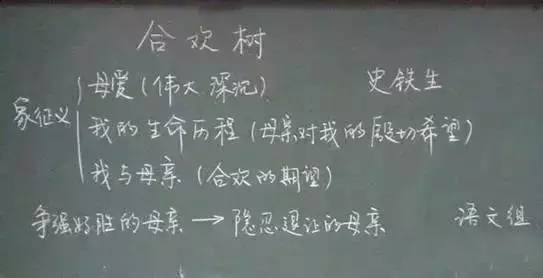 合欢树
母爱(伟大深沉) 史铁生
象征义 我的生命历程(母亲对我的殷切希望)
我与母亲(合欢的期望)
争强好胜的母亲→隐忍退让的母亲 语文组